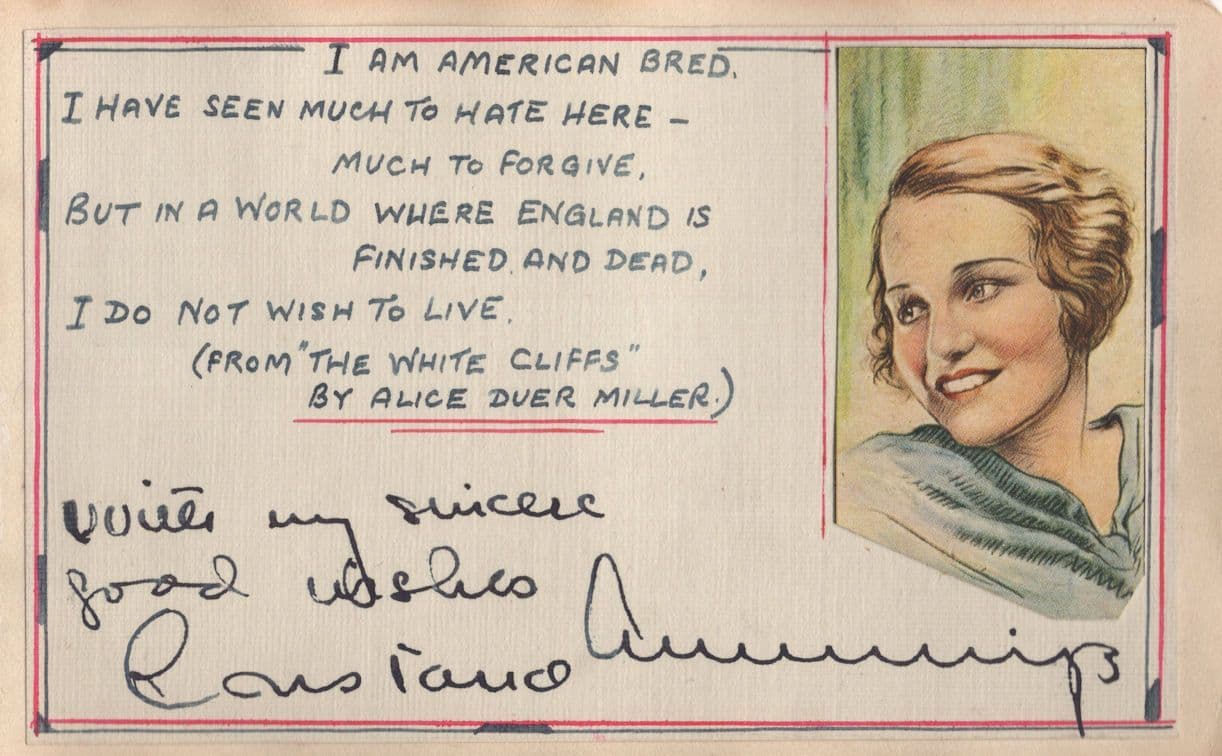 I AM AMERICAN BRED.
I HAVE SEEN MUCH TO HATE HERE –
MUCH TO FORGIVE,
BUT IN A WORLD WHERE ENGLAND IS
FINISHED AND DEAD,
I DO NOT WISH TO LIVE.
(FROM "THE WHITE CLIFFS"
BY ALICE DUER MILLER.)
With my sincere
good wishes
Constance Cummings